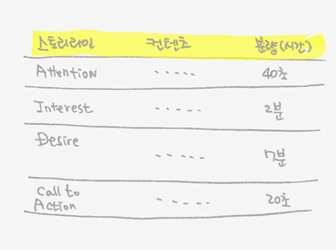 스토리라인 컨텐츠 분량(시간)
Attention ..... 40초
Interest ..... 2분
Desire ..... 7분
Call to
Action ..... 20초